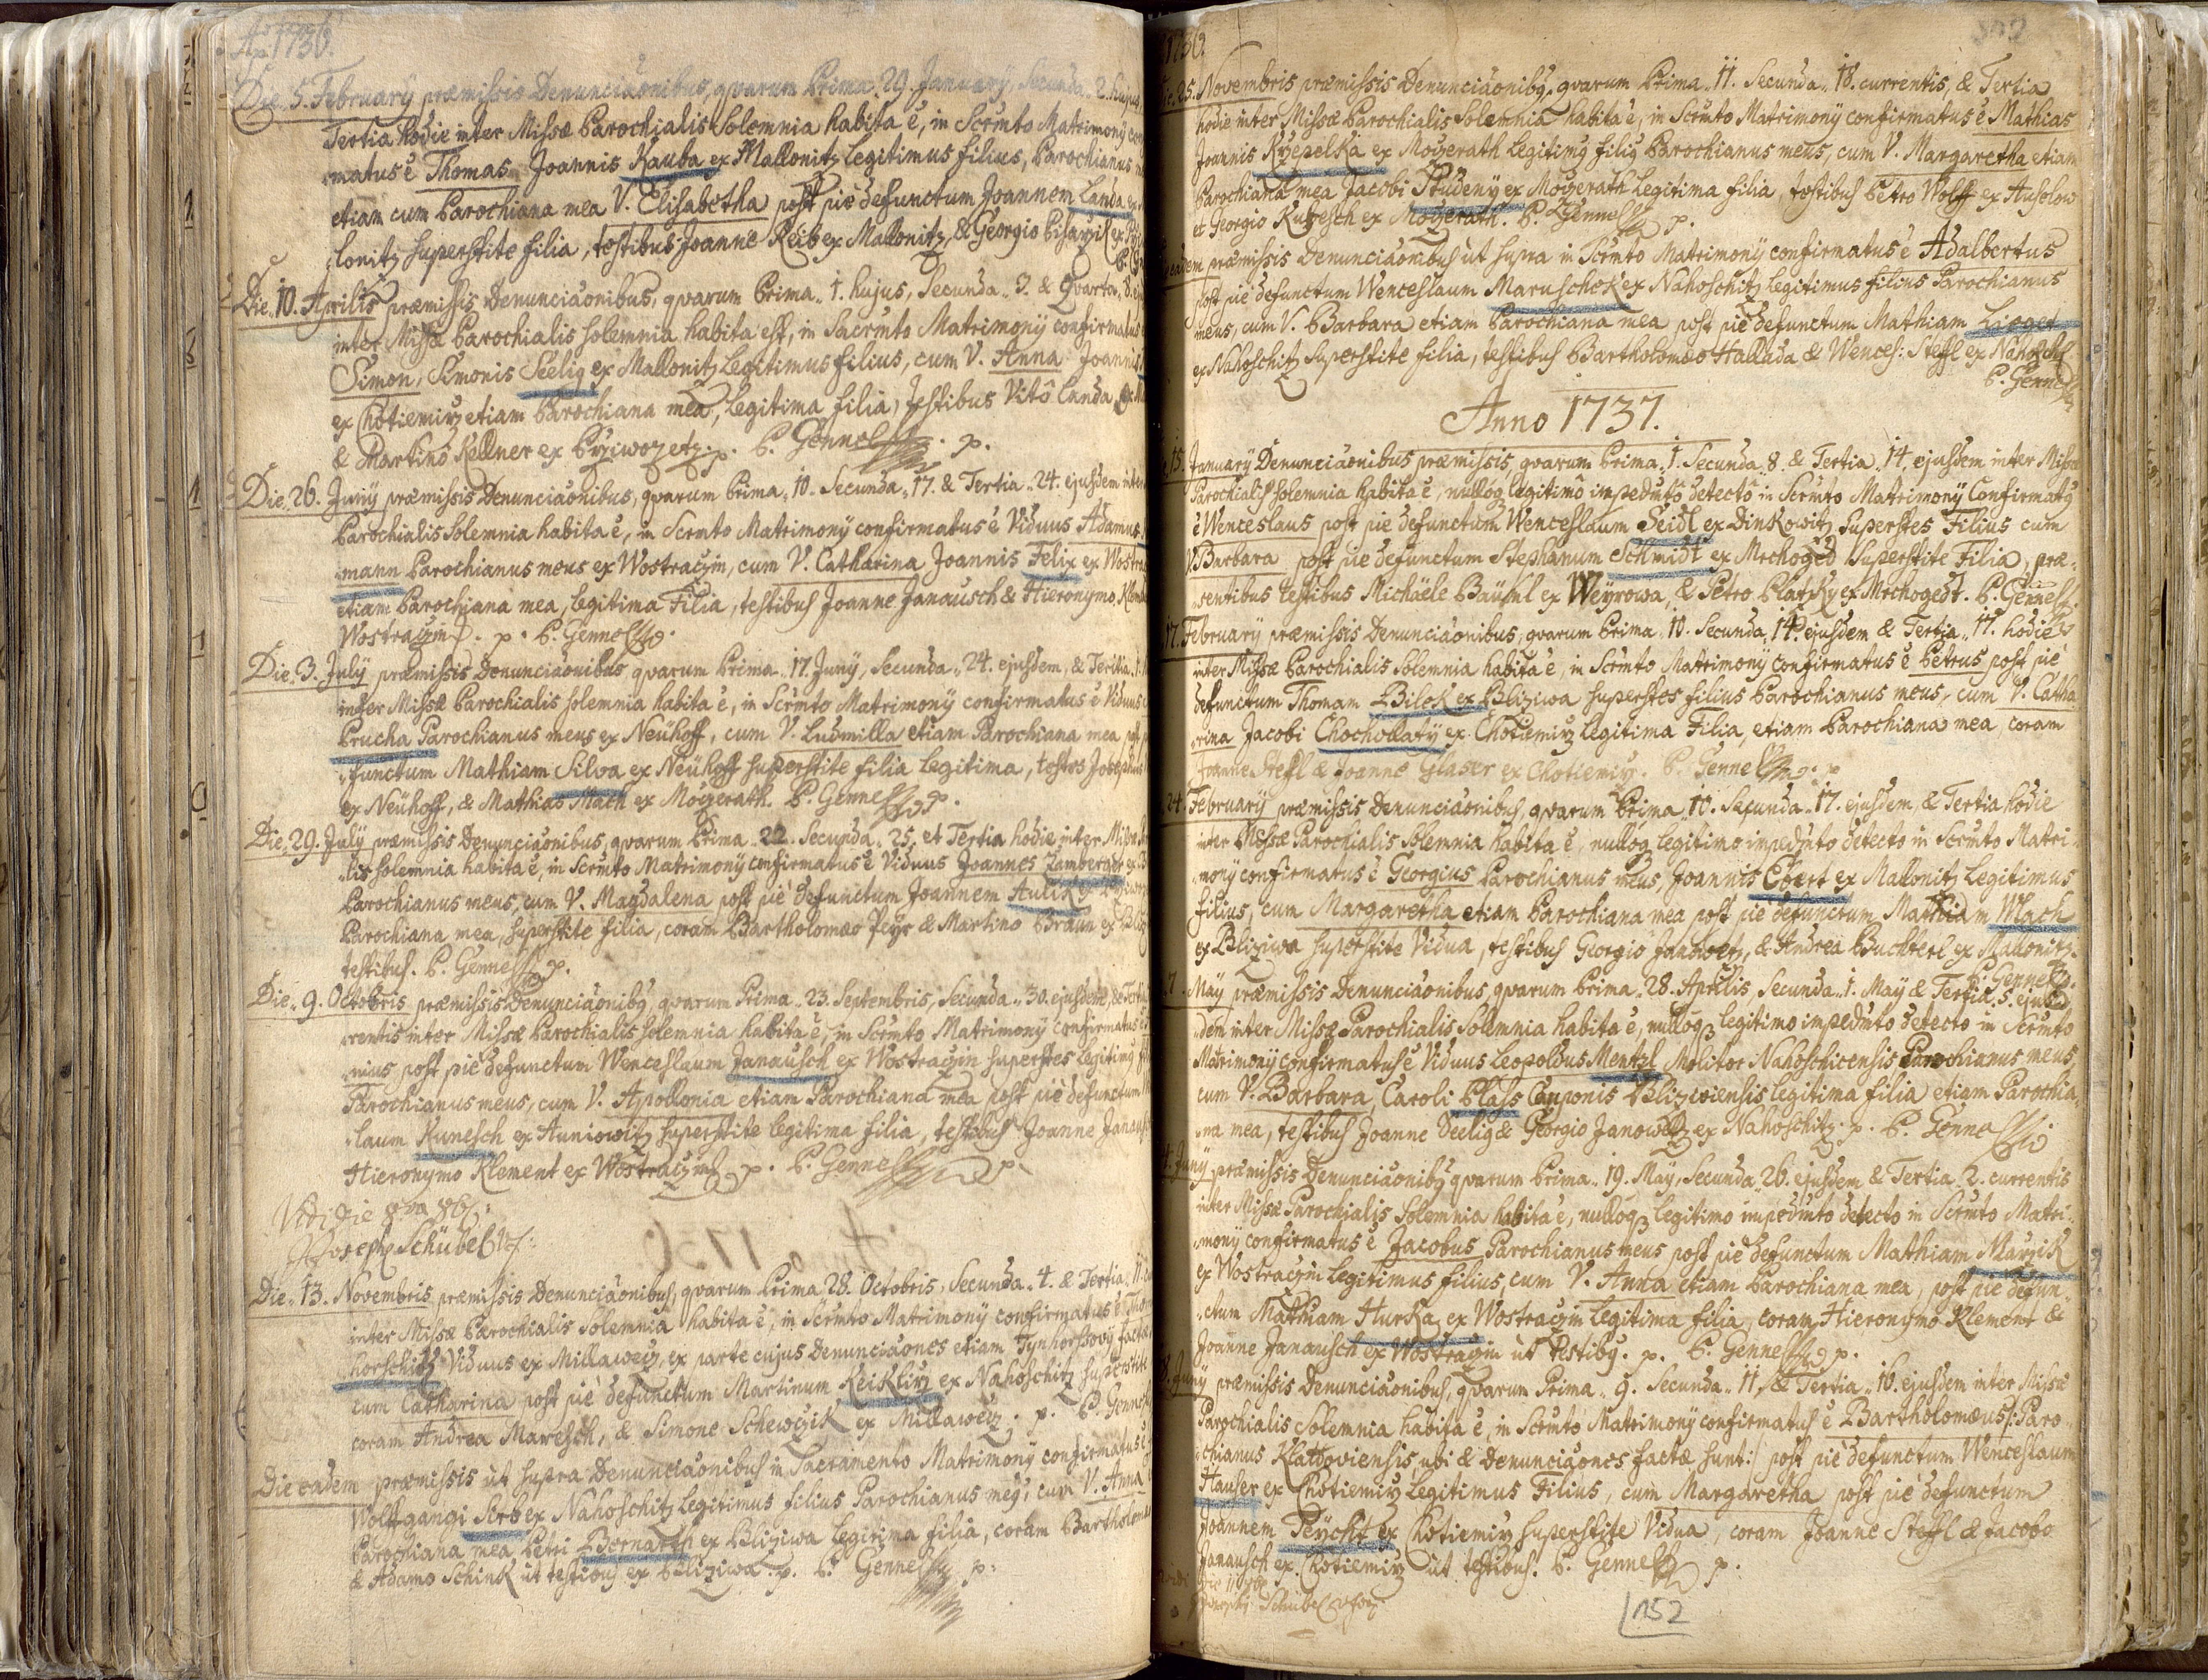 Ao 1736.
Die 5. February præmissis Denunciaõnibus, qvarum Prima 29. January, Secunda 2. hujus
Tertia hodie inter Missæ Parochialis Solemnia habita ẽ, in Scrmto Matrimony
matus ẽ Thomas Joannis Kauba ex Mallonitz Legitimus filius, Parochianus
etiam cum Parochiana mea V. Elisabetha post piè defunctum Joannem Landa
lonitz superstite filia, testibus Joanne Reib ex Mallonitz, & Georgio Pisarzik ex
Die 10. Aprilis præmissis Denunciaõnibus, qvarum Prima 1. hujus, Secunda 3. & Qvarta 8.
inter Missæ Parochialis solemnia habita est, in Sacrmto Matrimonÿ confirmatus
Simon, Simonis Seelig ex Mallonitz Legitimus filius, cum V. Anna Joannis
ex Chotiemirz etiam Parochiana mea, legitima filia, testibus Vitô Landa
& Martinô Kellner ex Przïwozetz. p. P. Gennel p.
Die 26. Junÿ præmissis Denunciaõnibus, qvarum Prima 10. Secunda 17. & Tertia 24. ejusdem inter
Parochialis solemnia habita ẽ, in Scrmto Matrimonÿ confirmatus ẽ Viduus Adamus
mann Parochianus meus ex Wostraczin, cum V. Catharina Joannis Felix ex Wostra
etiam Parochiana mea, legitima Filia, testibus Joanne Janausch & Hieronymo Klement
Wostraczin. p. P. Gennel
Die 3. July præmissis Denunciaõnibus qvarum Prima 17. Junÿ, Secunda 24. ejusdem, & Tertia 1.
inter Missæ Parochialis solemnia habita ẽ, in Scrmto Matrimonÿ confirmatus ẽ Viduus
Prucha Parochianus meus ex Neühoff, cum V. Ludmilla etiam Parochiana mea
functum Mathiam Silva ex Neühoff superstite filia legitima, testes Josephus
ex Neühoff, & Mathias Mach ex Mogzerath. P. Gennel p.
Die 29. July præmissis Denunciaõnibus, qvarum Prima 22. Secunda 25. et Tertia hodie inter Missæ
lis solemnia habita ẽ, in Scrmto Matrimonÿ confirmatus ẽ Viduus Joannes Lamberger
Parochianus meus, cum V. Magdalena post piè defunctum Joannem Aulik
Parochiana mea, superstite filia, coram Bartholomæo Peyr & Martino Braun ex
testibus. P. Gennel p.
Die 9. Octobris præmissis Denunciaõnibg, qvarum Prima 23. Septembris, Secunda 30. ejusdem, & Tertia
rentis inter Missæ Parochialis solemnia habita ẽ, in Scrmto Matrimonÿ confirmatus
nius post piè defunctum Wenceslaum Janausch ex Wostraczin superstes legitimg
Parochianus meus, cum V. Apollonia etiam Parochiana mea post piè defunctum
laum Kunesch ex Auniowitz superstite legitima filia, testibus Joanne Janausch
Hieronymo Klement ex Wostraczin p. P. Gennel p.
Vidi die 9va 8b:
Joseph Schübel
Die 13. Novembris præmissis Denunciaõnibus, qvarum Prima 28. Octobris, Secunda 4. & Tertia 11.
inter Missæ Parochialis Solemnia habita ẽ, in Scrmto Matrimonÿ confirmatus ẽ Thom
horschitz Viduus ex Millawecz, ex parte cujus Denunciaõnes etiam Tynhorssovÿ factæ
cum Catharina post piè defunctum Martinum Keiklirz ex Nahoschitz superstite
coram Andrea Maresch, & Simone Schewczik ex Millawecz. p. P. Gennel
Die eadem præmissis ut supra Denunciaõnibus in Sacramento Matrimonÿ confirmatus ẽ
Wolffgangi Serb ex Nahoschitz Legitimus filius Parochianus meg, cum V. Anna
Parochiana mea Petri Bernarth ex Bliziwa legitima filia, coram Bartholomæo
& Adamo Schink ut testibus ex Bliziwa. p. P. Gennel p.
1736.
25. Novembris præmissis Denunciaõnibg, qvarum Prima 11. Secunda 18. currentis, & Tertia
hodie inter Missæ Parochialis Solemnia habita ẽ, in Scrmto Matrimonÿ confirmatus ẽ Mathias
Joannis Krzepelka ex Mogzerath Legitimg filig Parochianus meus, cum V. Margaretha etiam
Parochiana mea Jacobi Studeny ex Mogzerath Legitima filia, testibus Petro Wolff ex Auholow
et Georgio Kutzesch ex Mogzerath. P. Gennel p.
eadem præmissis Denunciaõnibus ut supra in Scrmto Matrimonÿ confirmatus ẽ Adalbertus
post piè defunctum Wenceslaum Maruschek ex Nahoschitz legitimus filius Parochianus
meus, cum V. Barbara etiam Parochiana mea post piè defunctum Mathiam Lieger
ex Nahoschitz superstite filia, testibus Bartholomæo Hallada & Wences: Steffl ex Nahoschitz
P. Gennel
Anno 1737.
15. Januarÿ Denunciaõnibus præmissis, qvarum Prima 1. Secunda 8. & Tertia 14. ejusdem inter Missæ
Parochialis solemnia habita ẽ, nulloq legitimô impedmtô detectô in Scrmto Matrimonÿ Confirmatg
ẽ Wenceslaus post piè defunctum Wenceslaum Seidl ex Dinkowitz Superstes Filius cum
V. Barbara post piè defunctum Stephanum Schmidt ex Mrchoged superstite Filia, præ
sentibus testibus Michäele Bäuml ex Weyrowa, & Petro Platzky ex Mrchogedt. P. Gennel
17. Februarÿ præmissis Denunciaõnibus, qvarum Prima 10. Secunda 14. ejusdem & Tertia 17. hodie
inter Missæ Parochialis Solemnia habita ẽ, in Scrmto Matrimonÿ confirmatus ẽ Petrus post piè
defunctum Thomam Bilek ex Bliziwa superstes filius Parochianus meus, cum V. Catha
rina Jacobi Chochollatÿ ex Chotiemirz legitima Filia, etiam Parochiana mea, coram
Joanne Steffl & Joanne Glaser ex Chotiemirz. P. Gennel p
24. Februarÿ præmissis Denunciaõnibus, qvarum Prima 10. Secunda 17. ejusdem, & Tertia hodie
inter Missæ Parochialis Solemnia habita ẽ, nulloq legitimo impedmto detecto in Scrmto Matri
monÿ confirmatus ẽ Georgius Parochianus meus, Joannis Ebert ex Mallonitz Legitimus
filius, cum Margaretha etiam Parochiana mea post piè defunctum Mathiam Mach
ex Bliziwa superstite Vidua, testibus Georgio Janowetz, & Andrea Buchterl ex Mallonitz.
P. Gennel
7. May præmissis Denunciaõnibus, qvarum Prima 28. Aprilis, Secunda 1. Maÿ & Tertia 5. ejus
dem inter Missæ Parochialis Solemnia habita ẽ, nulloq legitimo impedmto detecto in Scrmto
Matrimonÿ confirmatus ẽ Viduus Leopoldus Mentzl Molitor Nahoschicensis Parochianus meus
cum V. Barbara, Caroli Plass Cauponis Blizwiensis legitima filia etiam Parochia
na mea, testibus Joanne Seelig & Georgio Janowetz ex Nahoschitz. p. P. Gennel
4. Junÿ præmissis Denunciaõnibg qvarum Prima 19. Maÿ, Secunda 26. ejusdem & Tertia 2. currentis
inter Missæ Parochialis Solemnia habita ẽ, nulloq legitimo impedmto detecto in Scrmto Matri
monÿ confirmatus ẽ Jacobus Parochianus meus post piè defunctum Mathiam Marzik
ex Wostraczin Legitimus filius, cum V. Anna etiam Parochiana mea, post piè defun
ctum Mathiam Hurka ex Wostraczin legitima filia, coram Hieronymo Klement &
Joanne Janausch ex Wostraczin ut testibg. p. P. Gennel p.
Junÿ præmissis Denunciaõnibus, qvarum Prima 9. Secunda 11. & Tertia 16. ejusdem inter Missæ
Parochialis Solemnia habita ẽ, in Scrmto Matrimonÿ confirmatus ẽ Bartholomæus /: Paro
chianus Klattoviensis, ubi & Denunciaõnes factæ sunt :/ post piè defunctum Wenceslaum
Hauser ex Chotiemirz Legitimus Filius, cum Margaretha post piè defunctum
Joannem Peyckt ex Chotiemirz superstite Vidua, coram Joanne Steffl & Jacobo
Janausch ex Chotiemirz ut testibus. P. Gennel p.
Schübel
152